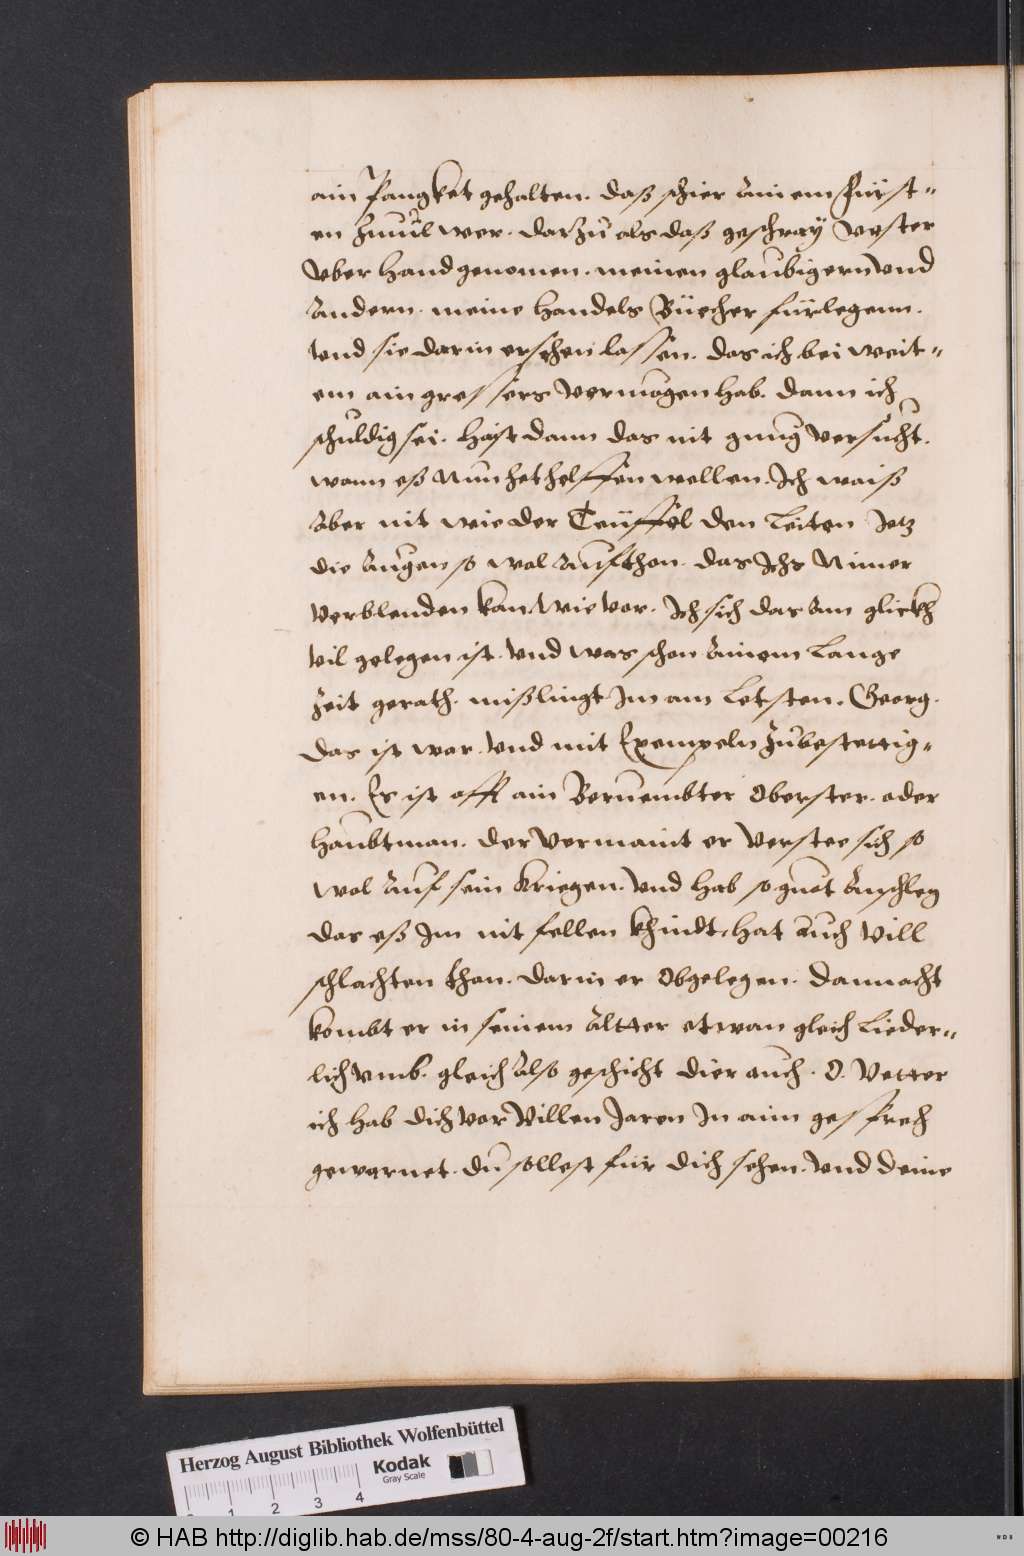 ain Pangket gehalten. daß schier ainem Fürst=
en zuuil wer. darzu als daß geschray vester
vber hand genomen. meinen glaubigern vnd
andern. meine handels Büecher fürlegenn.
vnd sie darin ersehen lassen. das ich bei weit=
em ain gressers vermogen hab. dann ich
schuldig sei. haist dann das nit gnug versucht.
wann eß Nun het helffen wellen. Ich waiß
aber nit wie der Teüffel den Leiten Jetz
die augen so wol aufthon. das Ichs Nimer
verblenden kan. wie vor. Ich sich das ann glickh
vil gelegen ist. vnd was schon ainem Lange
Zeit gerath. mißlingt Im am Letsten. Georg.
das ist war. vnd mit Exempeln zubestettig=
en. Es ist offt ain Beruembter Oberster. oder
haubtman. der vermaint er verstee sich so
wol auf sein kriegen. vnd hab so guot anschleg
das eß Im nit fellen khindt. hat auch vill
schlachten thon. darin er obgelegen. dannacht
kombt er in seinem altter etwan gleich Lieder=
lich vmb. gleich also geschicht dier auch. O. Vetter
ich hab dich vor villen Jaren In aim gesprech
gewarnet. du sollest für dich sehen. vnd deine
Herzog August Bibliothek Wolfenbüttel
Kodak
Gray Scale
1 2 3 4
© HAB http://diglib.hab.de/mss/80-4-aug-2f/start.htm?image=00216